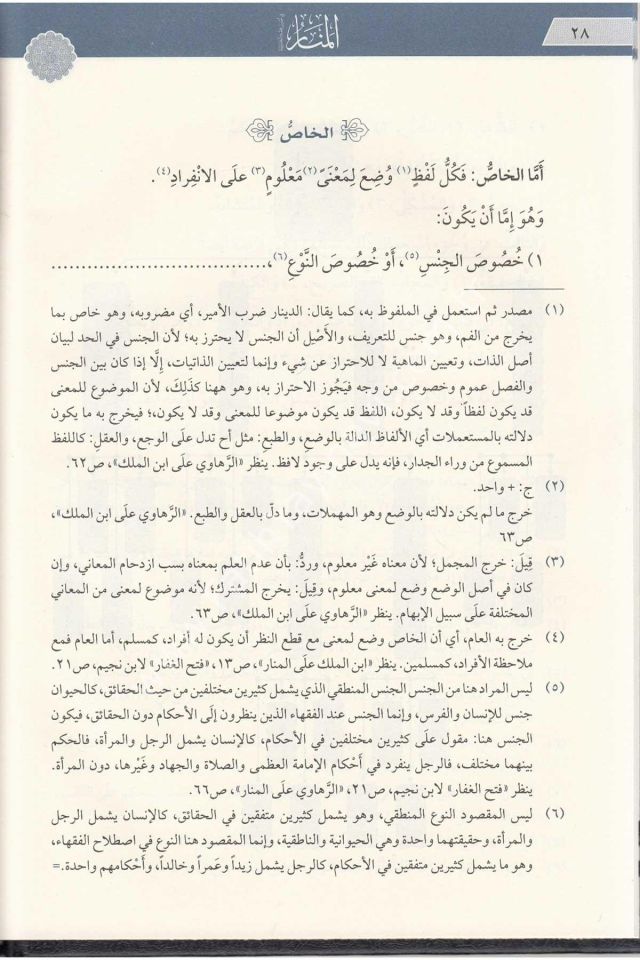 ٢٨
المنار
الخاصُّ
أَمَّا الخاصُّ: فَكُلُّ لَفْظٍ(١) وُضِعَ لِمَعْنَىً(٢) مَعْلُومٍ(٣) علَى الانْفِرادِ(٤).
وَهُوَ إِمَّا أَنْ يَكُونَ:
١) خُصُوصَ الجِنْسِ(٥)، أَوْ خُصُوصَ النَّوْعِ(٦)، ..................................
(١) مصدر ثم استعمل في الملفوظ به، كما يقال: الدينار ضرب الأمير، أي مضروبه، وهو خاص بما
يخرج من الفم، وهو جنس للتعريف، والأَصْل أن الجنس لا يحترز به؛ لأن الجنس في الحد لبيان
أصل الذات، وتعيين الماهية لا للاحتراز عن شيء وإنما لتعيين الذاتيات، إِلَّا إذا كان بين الجنس
والفصل عموم وخصوص من وجه فيَجُوز الاحتراز به، وهو ههنا كذَلِكَ، لأن الموضوع للمعنى
قد يكون لفظاً وقد لا يكون، اللفظ قد يكون موضوعا للمعنى وقد لا يكون،؛ فيخرج به ما يكون
دلالته بالمستعملات أي الألفاظ الدالة بالوضع، والطبع: مثل أح تدل علَى الوجع، والعقل: كاللفظ
المسموع من وراء الجدار، فإنه يدل على وجود لافظ. ينظر «الرَّهاوي علَى ابن الملك»، ص٦٢.
(٢) ج: + واحد.
خرج ما لم يكن دلالته بالوضع وهو المهملات، وما دلّ بالعقل والطبع. «الرَّهاوي علَى ابن الملك»،
ص٦٣
(٣) قِيلَ: خرج المجمل؛ لأن معناه غَيْر معلوم، وردُّ: بأن عدم العلم بمعناه بسب ازدحام المعاني، وإن
كان في أصل الوضع وضع لمعنى معلوم، وقِيلَ: يخرج المشترك؛ لأنه موضوع لمعنى من المعاني
المختلفة علَى سبيل الإبهام. ينظر «الرَّهاوي علَى ابن الملك»، ص٦٣.
(٤) خرج به العام، أي أن الخاص وضع لمعنى مع قطع النظر أن يكون له أفراد، كمسلم، أما العام فمع
ملاحظة الأفراد، كمسلمين. ينظر «ابن الملك علَى المنار»، ص١٣، «فتح الغفار» لابن نجيم، ص٢١.
(٥) ليس المراد هنا من الجنس الجنس المنطقي الذي يشمل كثيرين مختلفين من حيث الحقائق، كالحيوان
جنس للإنسان والفرس، وإنما الجنس عند الفقهاء الذين ينظرون إلَى الأحكام دون الحقائق، فيكون
الجنس هنا: مقول علَى كثيرين مختلفين في الأحكام، كالإنسان يشمل الرجل والمرأة، فالحكم
بينهما مختلف، فالرجل ينفرد في أَحْكام الإمامة العظمى والصلاة والجهاد وغَيْرها، دون المرأة.
ينظر «فتح الغفار» لابن نجيم، ص٢١، «الرَّهاوي علَى المنار»، ص٦٦.
(٦) ليس المقصود النوع المنطقي، وهو يشمل كثيرين متفقين في الحقائق، كالإنسان يشمل الرجل
والمرأة، وحقيقتهما واحدة وهي الحيوانية والناطقية، وإنما المقصود هنا النوع في اصطلاح الفقهاء،
وهو ما يشمل كثيرين متفقين في الأحكام، كالرجل يشمل زيداً وعَمراً وخالداً، وأَحْكامهم واحدة.=